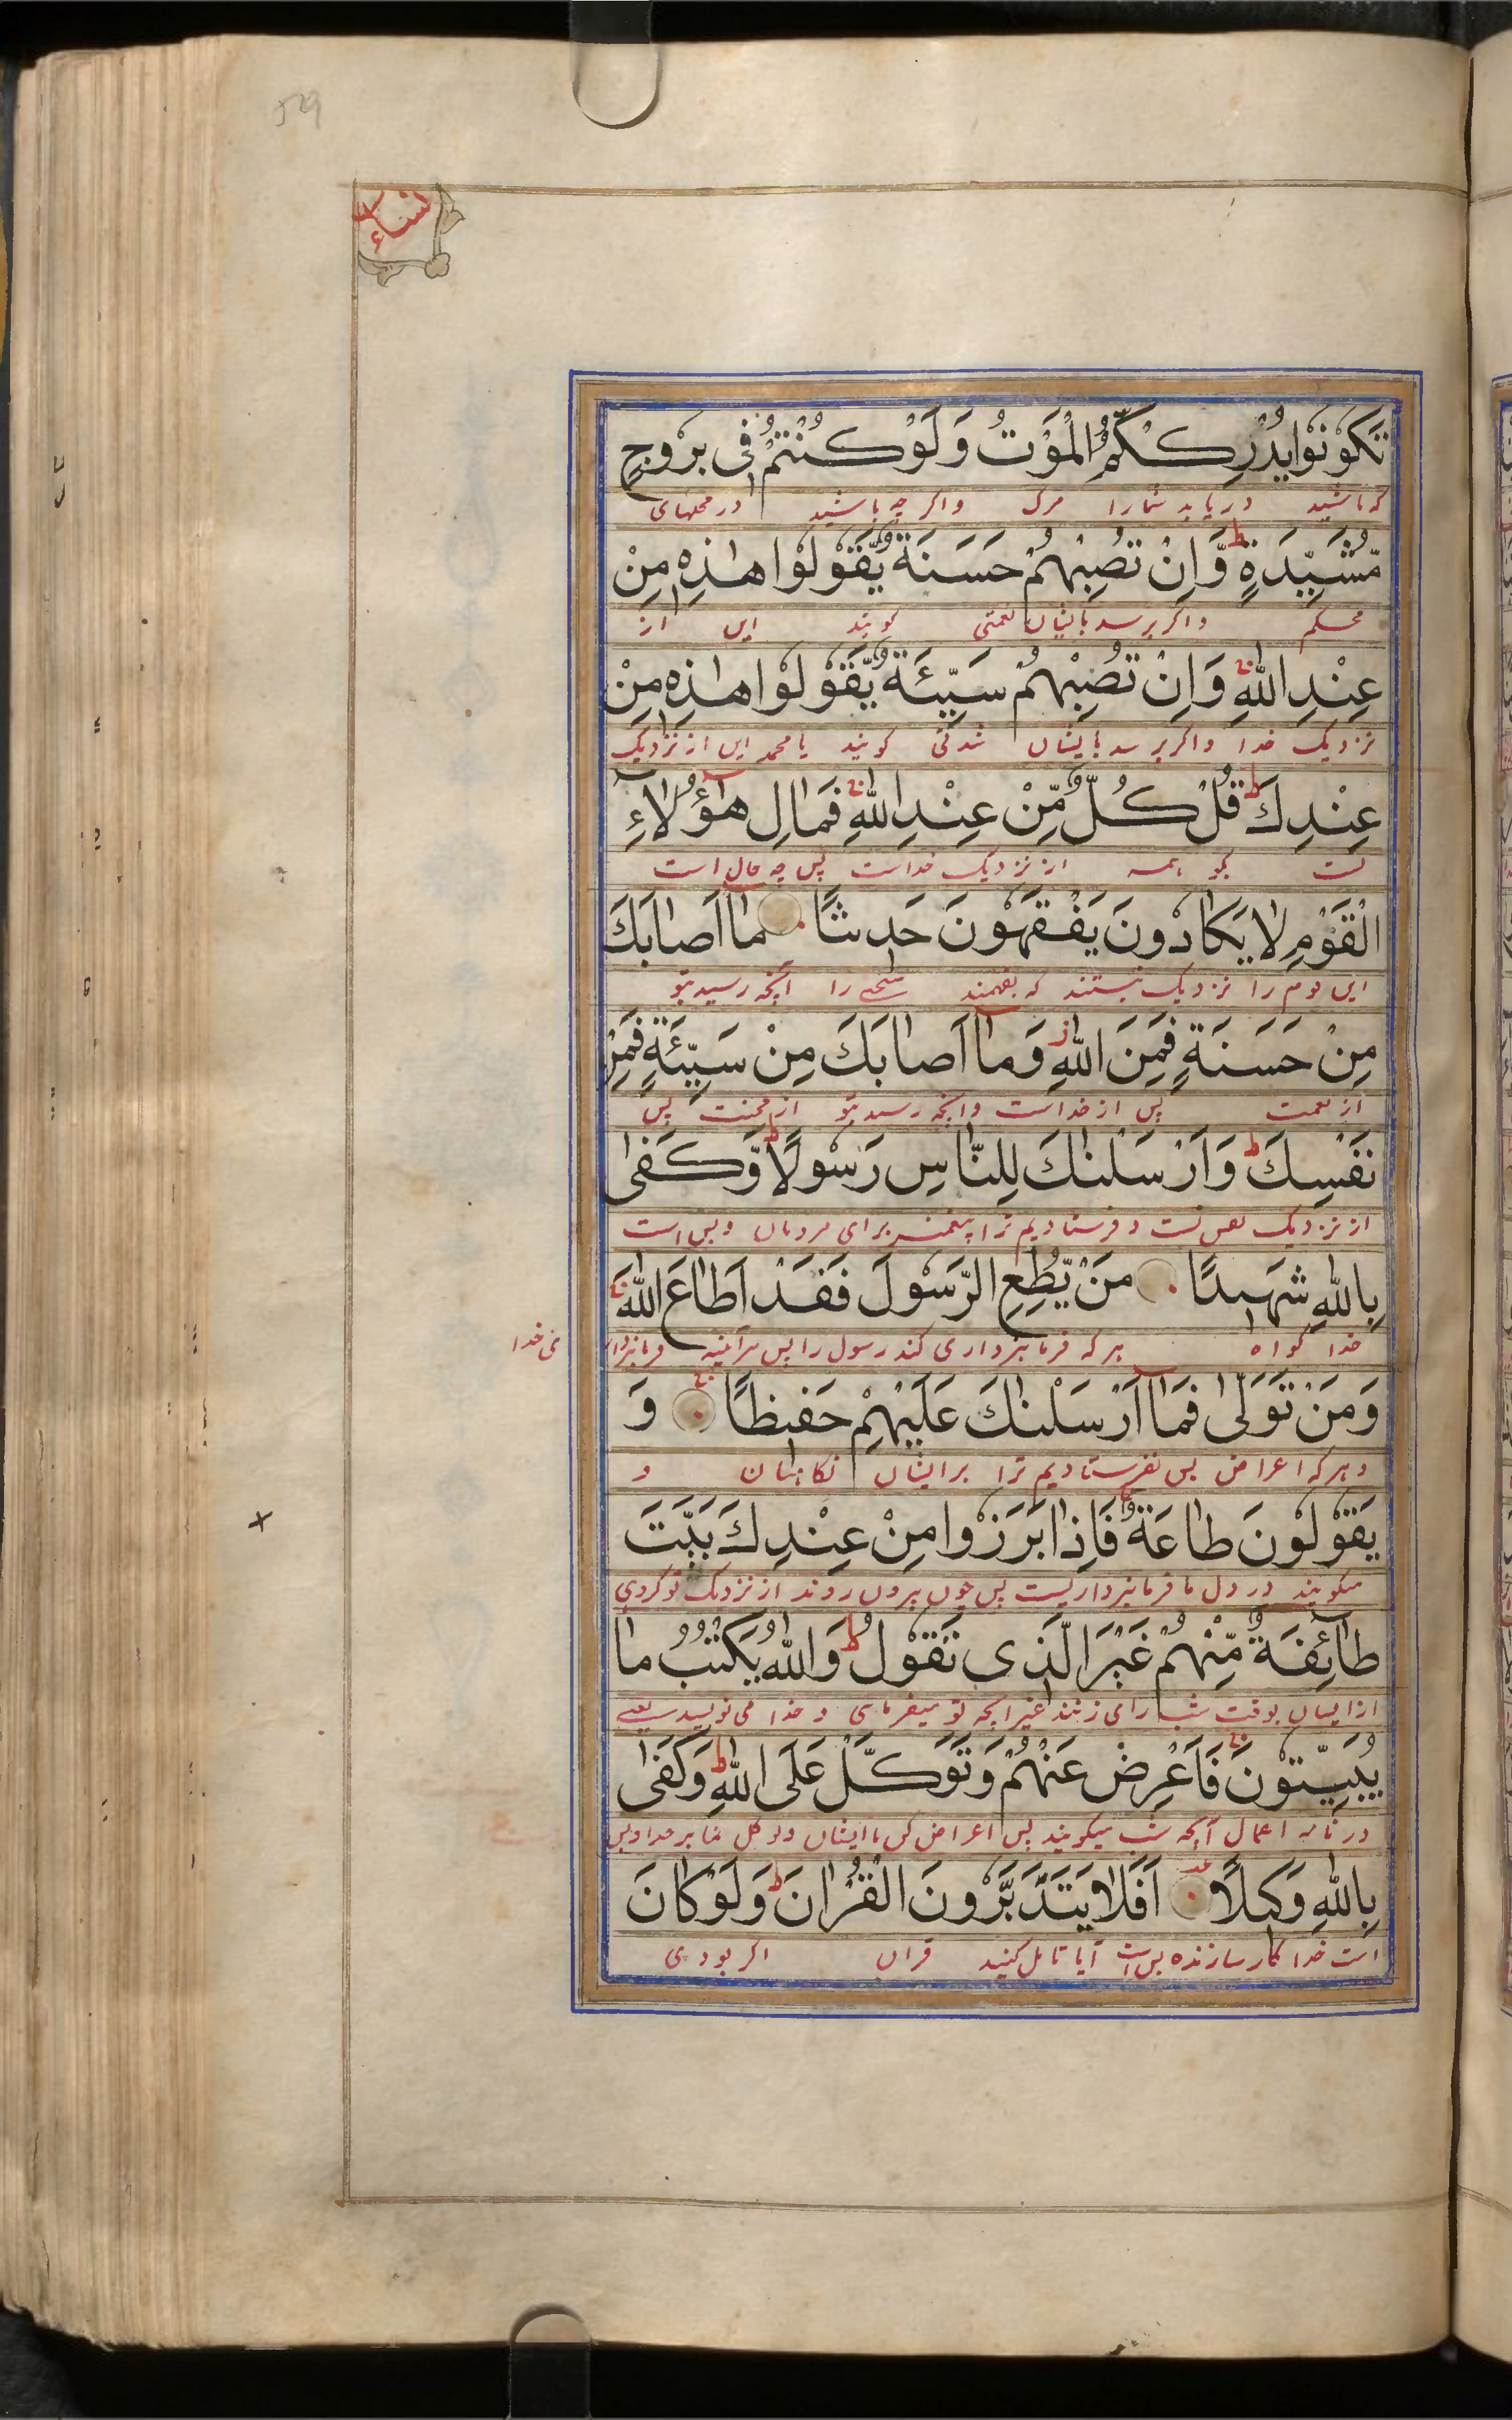 59
النساء
تَكُوْنُوْا يُدْرِكْكُّمُ الْمَوْتُ وَلَوْ كُنْتُمْ فِی بُرُوْجٍ
که باشید دریابد شمارا مرک واکر چه باشید در محلهای
مُّشَيَّدَةٍ ط وَّاِنْ تُصِبْهُمْ حَسَنَةٌ يَّقُوْلُوْا هٰذِهٖ مِنْ
محکم واکر برسد بایشان نعمتی کویند این از
عِنْدِ اللّٰهِ ج وَاِنْ تُصِبْهُمْ سَيِّئَةٌ يَّقُوْلُوْا هٰذِهٖ مِنْ
نزدیک خدا واکر برسد بایشان کویند یا محمد این از نزدیک
عِنْدِكَ ط قُلْ كُلٌّ مِّنْ عِنْدِ اللّٰهِ ج فَمَالِ هٰٓؤُلَاءِ
تست بکو همه از نزدیک خداست پس چه حال است
الْقَوْمِ لَا يَكَادُوْنَ يَفْقَهُوْنَ حَدِيثًا مَآ اَصَابَكَ
این قوم را نزدیک نیستند که بفهمند سخنی را آنچه رسید بتو
مِنْ حَسَنَةٍ فَمِنَ اللّٰهِ ز وَمَآ اَصَابَكَ مِنْ سَيِّئَةٍ فَمِنْ
از نعمت پس از خداست وانچه رسید بتو از محنت پس
نَفْسِكَ ط وَاَرْسَلْنٰكَ لِلنَّاسِ رَسُوْلًا ط وَّكَفٰى
از نزدیک نفس تست و فرستادیم ترا پیغمبر برای مردمان و بس است
بِاللّٰهِ شَهِيدًا مَنْ يُّطِعِ الرَّسُوْلَ فَقَدْ اَطَاعَ اللّٰهَ ج
خدا کواه هر که فرمانبرداری کند رسول را پس هرآئینه فرمانبردا
ی خدا
وَمَنْ تَوَلّٰى فَمَآ اَرْسَلْنٰكَ عَلَيْهِمْ حَفِيظًا ج وَ
و هر که اعراض پس نفرستادیم ترا برایشان نکاهبان و
يَقُوْلُوْنَ طَاعَةٌ فَاِذَا بَرَزُوْا مِنْ عِنْدِكَ بَيَّتَ
میکویند در دل ما فرمانبرداریست پس چون بیرون روند از نزدیک تو کردی
طَآئِفَةٌ مِّنْهُمْ غَيْرَ الَّذِی تَقُوْلُ ط وَاللّٰهُ يَكْتُبُ مَا
از ایشان بوقت شب رای زنند غیر انچه تو میفرمای و خدا می نویسد یعنے
يُبَيِّتُوْنَ ج فَاَعْرِضْ عَنْهُمْ وَتَوَكَّلْ عَلَى اللّٰهِ ط وَكَفٰى
در نامه اعمال آنچه شب میکویند پس اعراض کن باایشان و توکل نما بر خدا و بس
بِاللّٰهِ وَكِيلًا اَفَلَا يَتَدَبَّرُوْنَ الْقُرْاٰنَ ط وَلَوْ كَانَ
است خدا کارسازنده بس است آیا تامل کنید قران اکر بودی